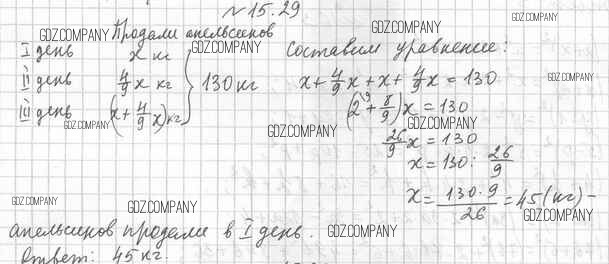 №15.29
GDZ.COMPANY
Продали апельсинов
GDZ.COMPANY
GDZ.COMPANY
I день x кг
GDZ.COMPANY
Составим уравнение:
II день 4/9 x кг } 130 кг
x + 4/9 x + x + 4/9 x = 130
GDZ.COMPANY
III день (x + 4/9 x) кг
(2^9 + 8/9) x = 130
GDZ.COMPANY
GDZ.COMPANY
GDZ.COMPANY
26/9 x = 130
x = 130 : 26/9
x = 130·9/26 = 45 (кг) –
GDZ.COMPANY
GDZ.COMPANY
GDZ.COMPANY
апельсинов продали в I день.
GDZ.COMPANY
Ответ: 45 кг.